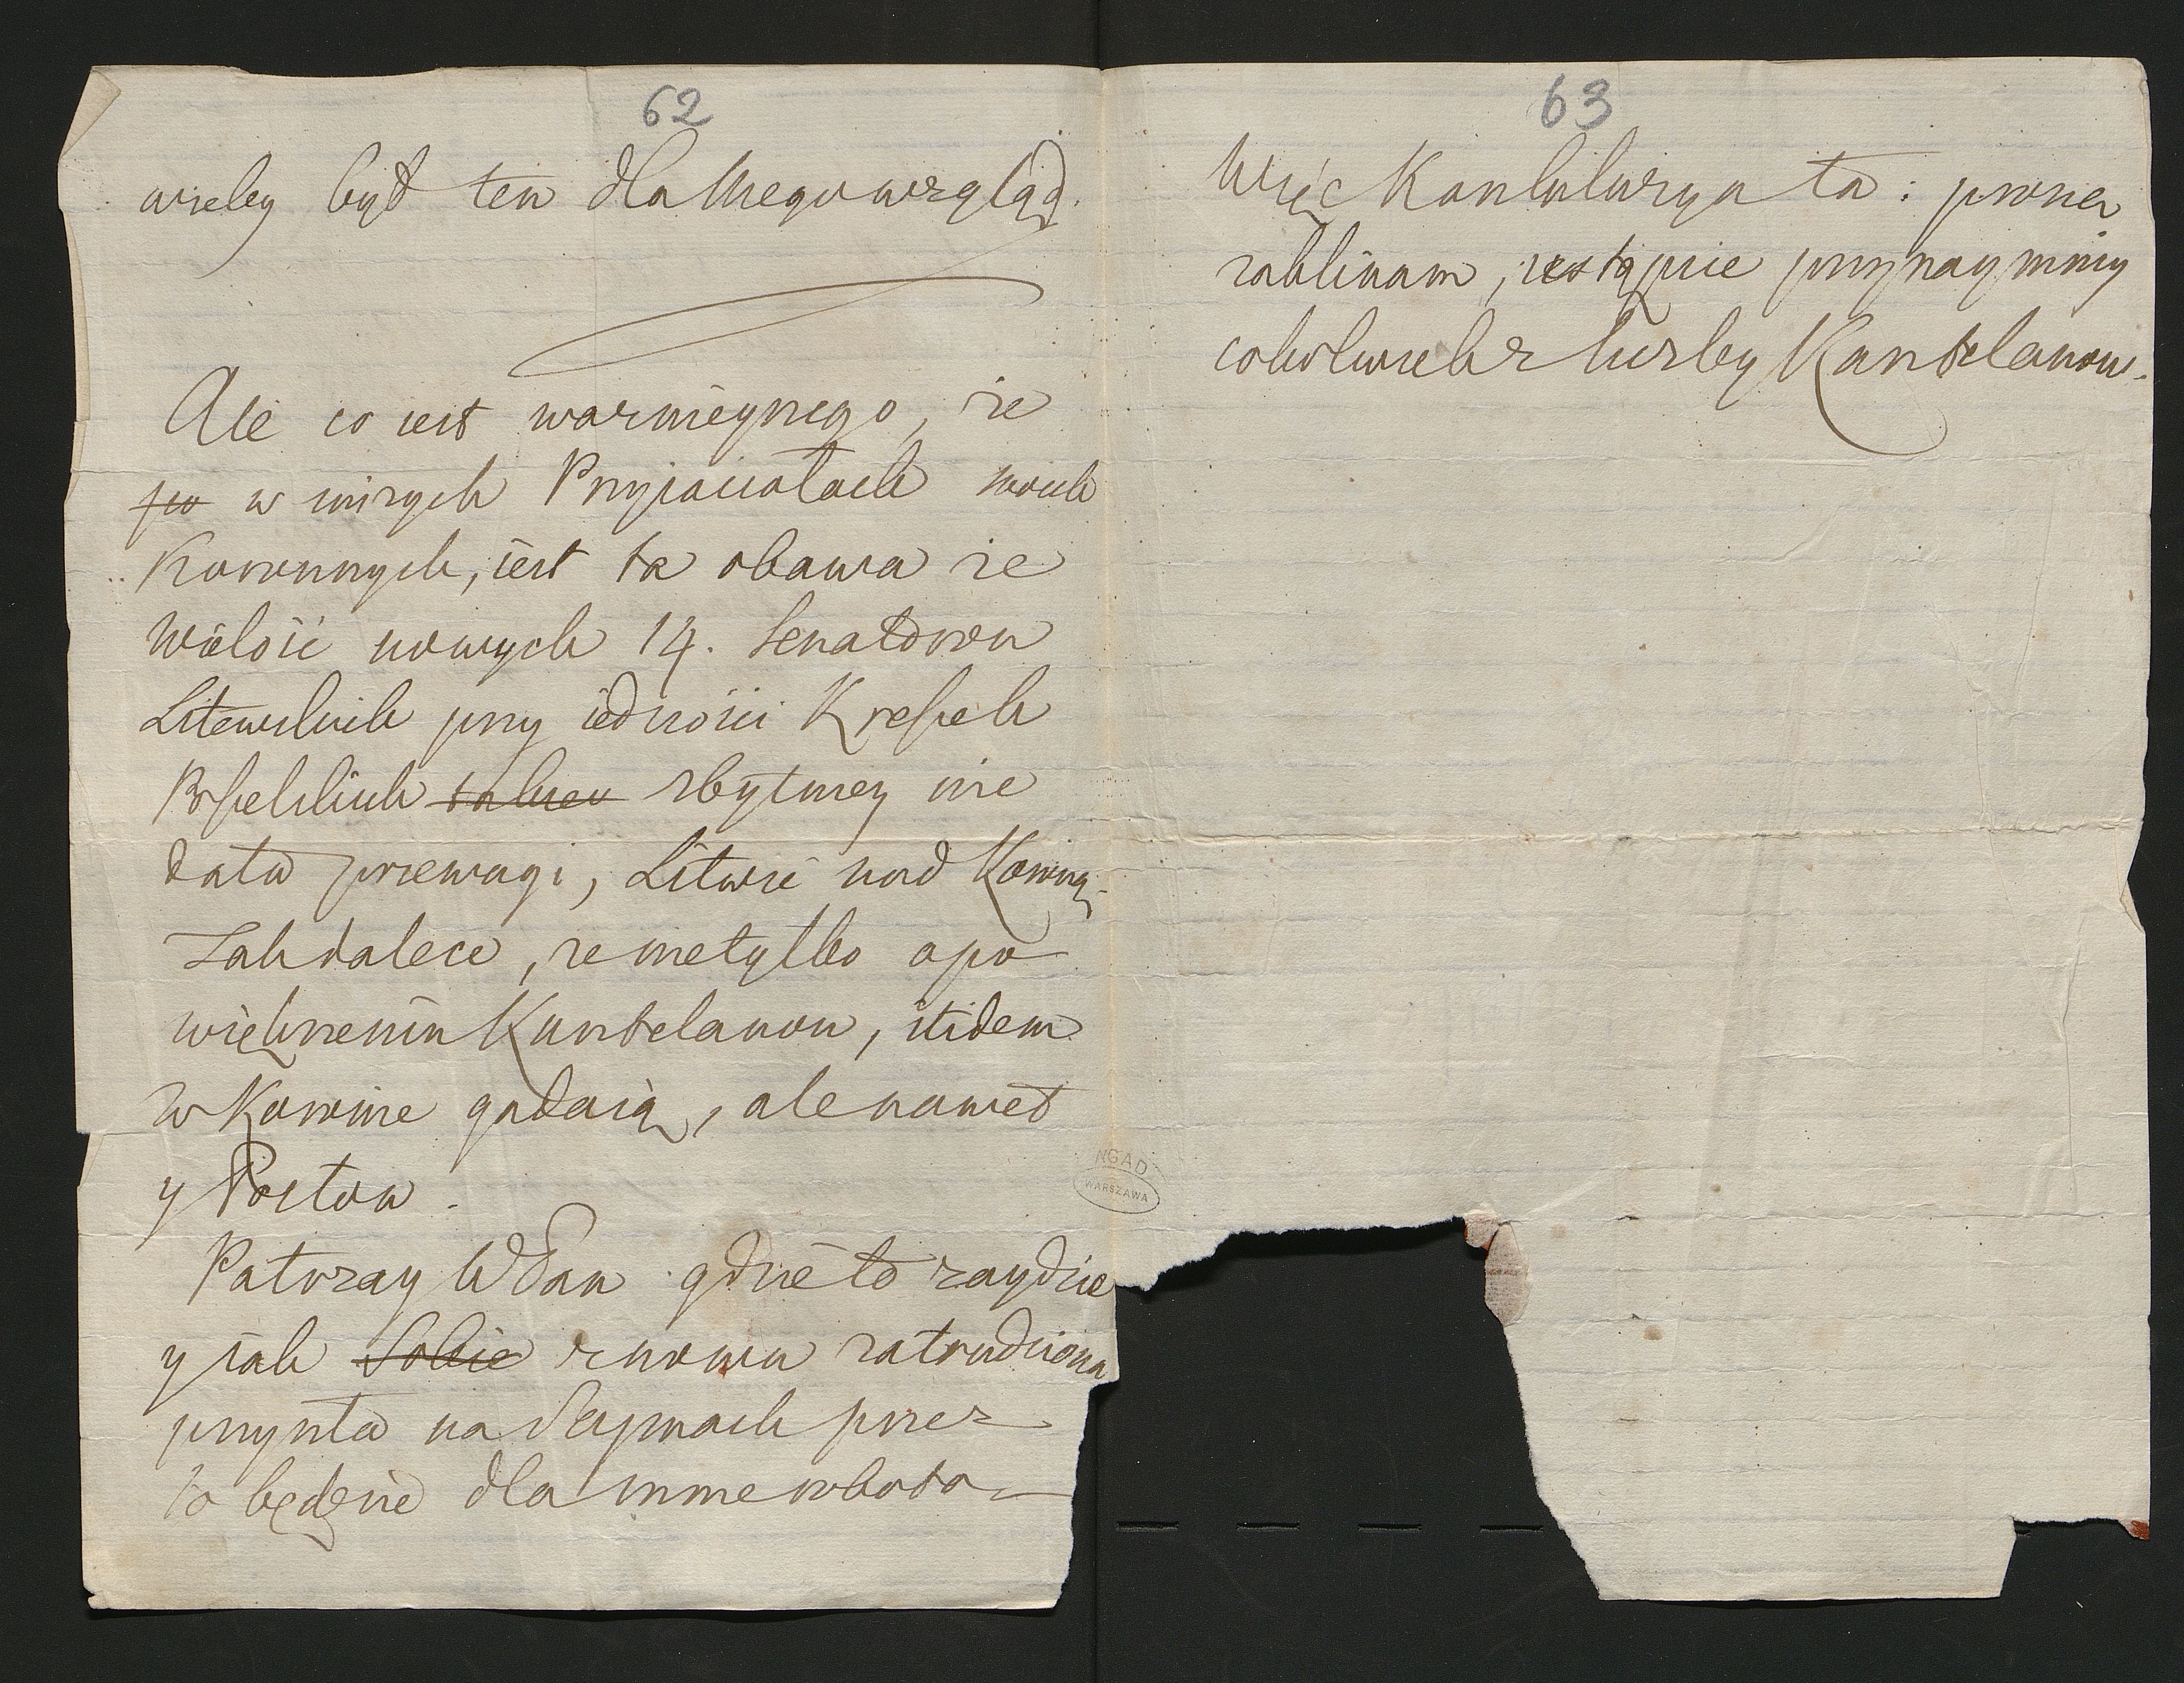 62
wieley byd ten dla Niego wzgląd.
Ale co iest ważnieyszego, że
po w inszych Przyiaciołach moich
Koronnych, iest ta obawa że
wielość nowych 14. Senatorow
Litewskich przy iedności Krzeseł
Poselskich zbytniey nie
dała przewagi, Litwie nad Koroną
Tak dalece, że nietylko o po
większeniu Kasztelanow, itidem
w Koronie gadaią, ale nawet
y Posłow.
Patrzay WPan gdzie to zaydzie
y iak Sobie znowu zatrudniona
przyszła na Seymach przez
to będzie dla mnie robota
63
Więc Koniunkturya ta: prosze
zaklinam, ustąpcie przynaymniey
cokolwiek z liczby Kasztelanow.
NGAD
WARSZAWA